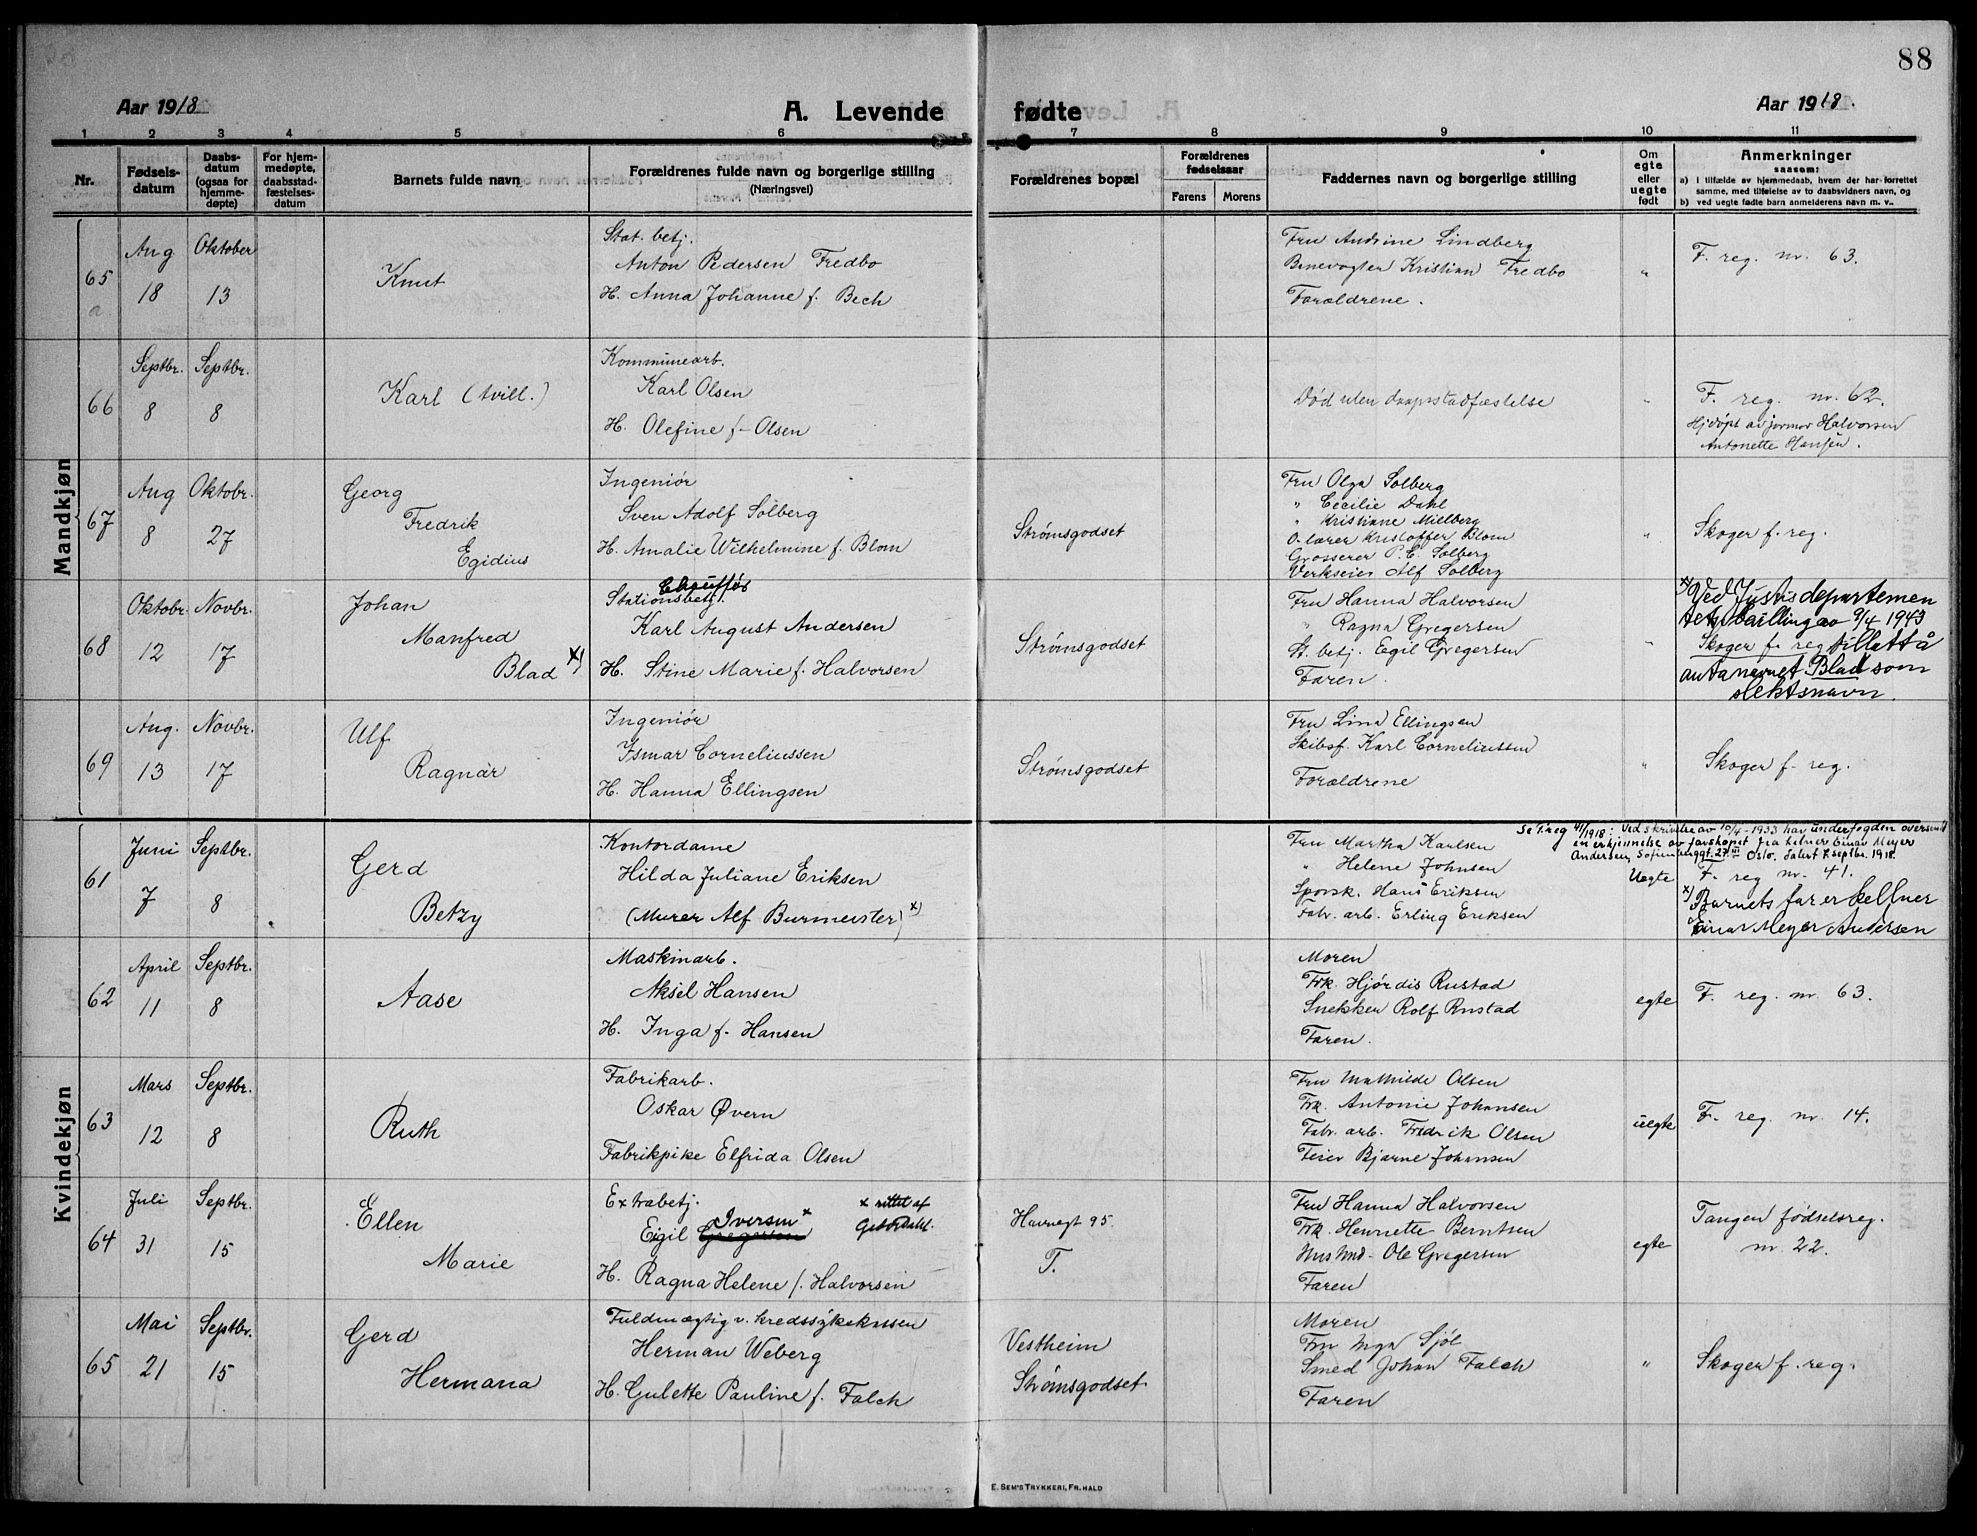 88
Aar 1918.
A. Levende
fødte
Aar 1918.
1 2 3 4 5 6 7 8 9 10 11
Nr.
Fødsels-
datum
Daabs-
datum
(ogsaa for
hjemme-
døpte)
For hjem-
medøpte,
daabsstad-
fæstelses-
datum
Barnets fulde navn
Forældrenes fulde navn og borgerlige stilling
(Næringsvei)
Forældrenes bopæl
Forældrenes
fødselsaar
Farens Morens
Faddernes navn og borgerlige stilling
Om
egte
eller
uegte
født
Anmerkninger
saasom:
a) I tilfælde av hjemmedaab, hvem der har forrettet
samme, med tilføielse av to daabsvidners navn, og
b) ved uegte fødte barn anmelderens navn m. v..
Mandkjøn
65
a
Aug
18
Oktober
13
Knut
Stat. betj.
Anton Pedersen Fredbo
H. Anna Johanne f. Bech
Fru Andrine Lindberg
Banevogter Kristian Fredbo
Forældrene.
"
F. reg. nr. 63.
66
Septbr.
8
Septbr.
8
Karl (tvill.)
Kommunearb.
Karl Olsen
H. Olefine f. Olsen
Død uten daapsstadfæstelse
"
F. reg. nr. 62.
Hjdøpt av jormor Halvorsen
Antonette Hansen.
67
Aug
8
Oktobr.
27
Georg
Fredrik
Egidius
Ingeniør
Sven Adolf Solberg
H. Amalie Wilhelmine f. Blom
Strømsgodset
Fru Olga Solberg
" Cecilie Dahl
" Kristiane Mielberg
O.lærer Kristoffer Blom
Grosserer P. E. Solberg
Verkseier Alf Solberg
"
Skoger f. reg.
68
Oktobr.
12
Novbr.
17
Johan
Manfred
Blad x)
Chauffør
Stationsbetj.
Karl August Andersen
H. Stine Marie f. Halvorsen
Strømsgodset
Fru Hanna Halvorsen
" Ragna Gregersen
St. betj. Egil Gregersen
Faren.
"
x) Ved Justisdepartemen
tets bevilling av 9/4 1943
Skoger f. reg. tillatt å
anta navnet Blad som
slektsnavn.
69
Aug.
13
Novbr.
17
Ulf
Ragnar
Ingeniør
Ismar Corneliussen
H. Hanna Ellingsen
Strømsgodset
Fru Lina Ellingsen
Skibsf. Karl Corneliussen
Forældrene
"
Skoger f. reg.
Kvindekjøn
61
Juni
7
Septbr.
8
Gerd
Betzy
Kontordame
Hilda Juliane Eriksen
(Murer Alf Burmeister) x)
Fru Martha Karlsen
" Helene Johnsen
Sporsk. Hans Eriksen
Fabr. arb. Erling Eriksen
Uegte
Se F.reg 41/1918: Ved skrivelse av 10/4-1933 har underfogden oversendt
en erkjennelse av farskapet fra kelner Einar Meyer
Andersen, Sofienberggt. 27 III Oslo. Datert 7. septbr. 1918.
F. reg nr. 41.
x) Barnets far er kellner
Einar Meyer Andersen
62
April
11
Septbr.
8
Aase
Maskinarb.
Aksel Hansen
H. Inga f. Hansen
Moren
Frk. Hjørdis Rustad
Snekker Rolf Rustad
Faren.
egte
F. reg. nr. 63.
63
Mars
12
Septbr.
8
Ruth
Fabrikarb.
Oskar Øvern
Fabrikpike Elfrida Olsen
Fru Mathilde Olsen
Frk. Antonie Johansen
Fabr. arb. Fredrik Olsen
Feier Bjarne Johansen
uegte
F. reg. nr. 14.
64
Juli
31
Septbr.
15
Ellen
Marie
Extrabetj.
x rettet af
Iversen x
Eigil Gregersen
H. Ragna Helene f. Halvorsen
Havnegt 95.
T.
Fru Hanna Halvorsen
Frk. Henriette Berntsen
Husmd. Ole Gregersen
Faren
egte
Tangen fødselsreg.
nr. 22.
65
Mai
21
Septbr.
15
Gerd
Hermana
Fuldmægtig v. kredssykekassen
Herman Weberg
H. Gulette Pauline f. Falch
Vestheim
Strømsgodset
Moren
Fru Inga Sjøl
Smed Johan Falch
Faren
"
Skoger f. reg.
E. SEM'S TRYKKERI, FR.HALD